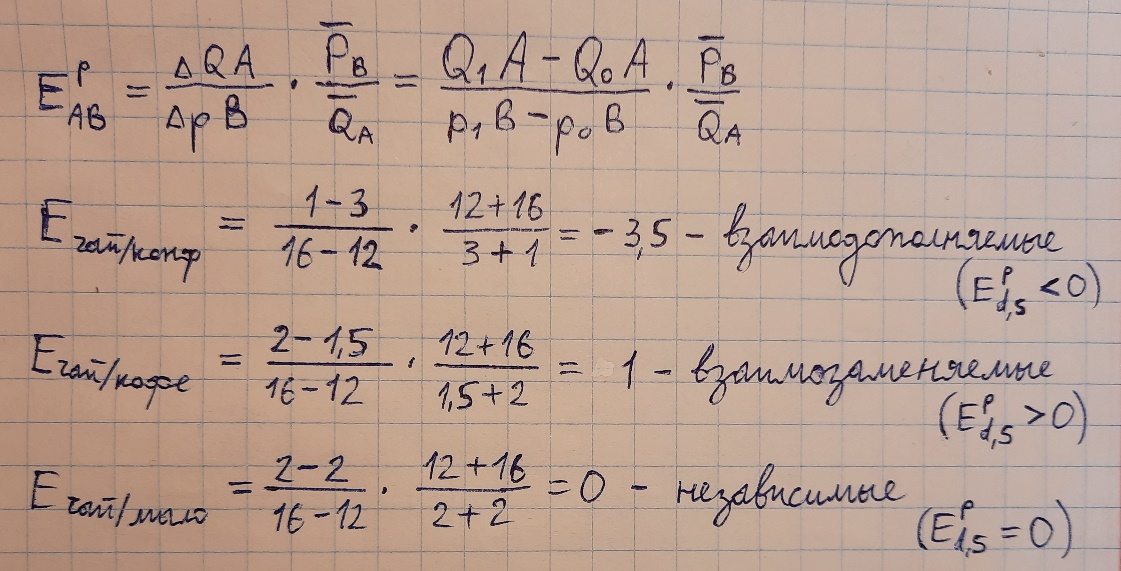 E^P_AB = ΔQA/Δp B · P̅_B/Q̅_A = (Q₁A − Q₀A)/(p₁B − p₀B) · P̅_B/Q̅_A
E чай/конф = (1−3)/(16−12) · (12+16)/(3+1) = −3,5 – взаимодополняемые
(E^P_d,s < 0)
E чай/кофе = (2−1,5)/(16−12) · (12+16)/(1,5+2) = 1 – взаимозаменяемые
(E^P_d,s > 0)
E чай/мыло = (2−2)/(16−12) · (12+16)/(2+2) = 0 – независимые
(E^P_d,s = 0)